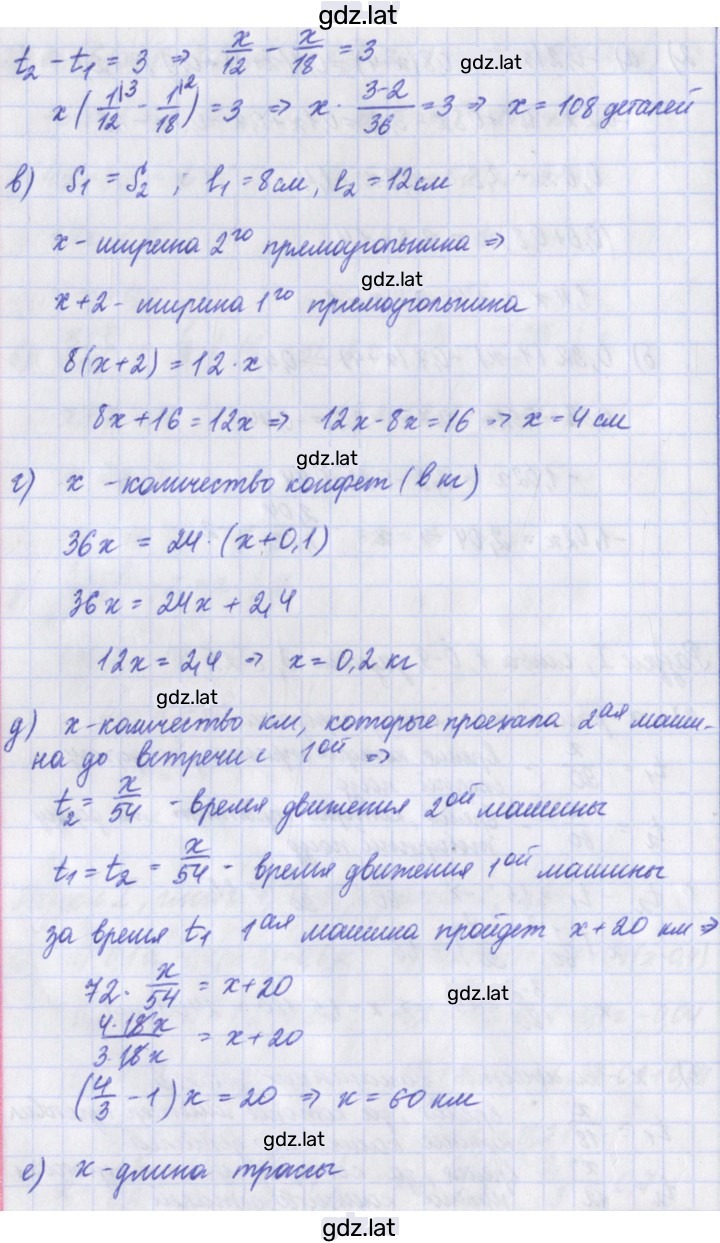 gdz.lat
t₂ - t₁ = 3 ⇒ x/12 - x/18 = 3
gdz.lat
x(1/12 |3 - 1/18 |2) = 3 ⇒ x · (3-2)/36 = 3 ⇒ x = 108 деталей
в) S₁ = S₂ , l₁ = 8 см, l₂ = 12 см
x - ширина 2го прямоугольника ⇒
gdz.lat
x+2 - ширина 1го прямоугольника
8(x+2) = 12·x
8x+16 = 12x ⇒ 12x-8x=16 ⇒ x = 4 см
gdz.lat
г) x - количество конфет (в кг)
36x = 24·(x+0,1)
36x = 24x + 2,4
12x = 2,4 ⇒ x = 0,2 кг
gdz.lat
д) x - количество км, которые проехала 2ая маши-
на до встречи с 1ой ⇒
t₂ = x/54 - время движения 2ой машины
t₁ = t₂ = x/54 - время движения 1ой машины
за время t₁ 1ая машина пройдет x+20 км ⇒
72· x/54 = x+20
gdz.lat
4·18x/3·18x = x+20
(4/3 - 1) x = 20 ⇒ x = 60 км
gdz.lat
е) x - длина трассы
gdz.lat